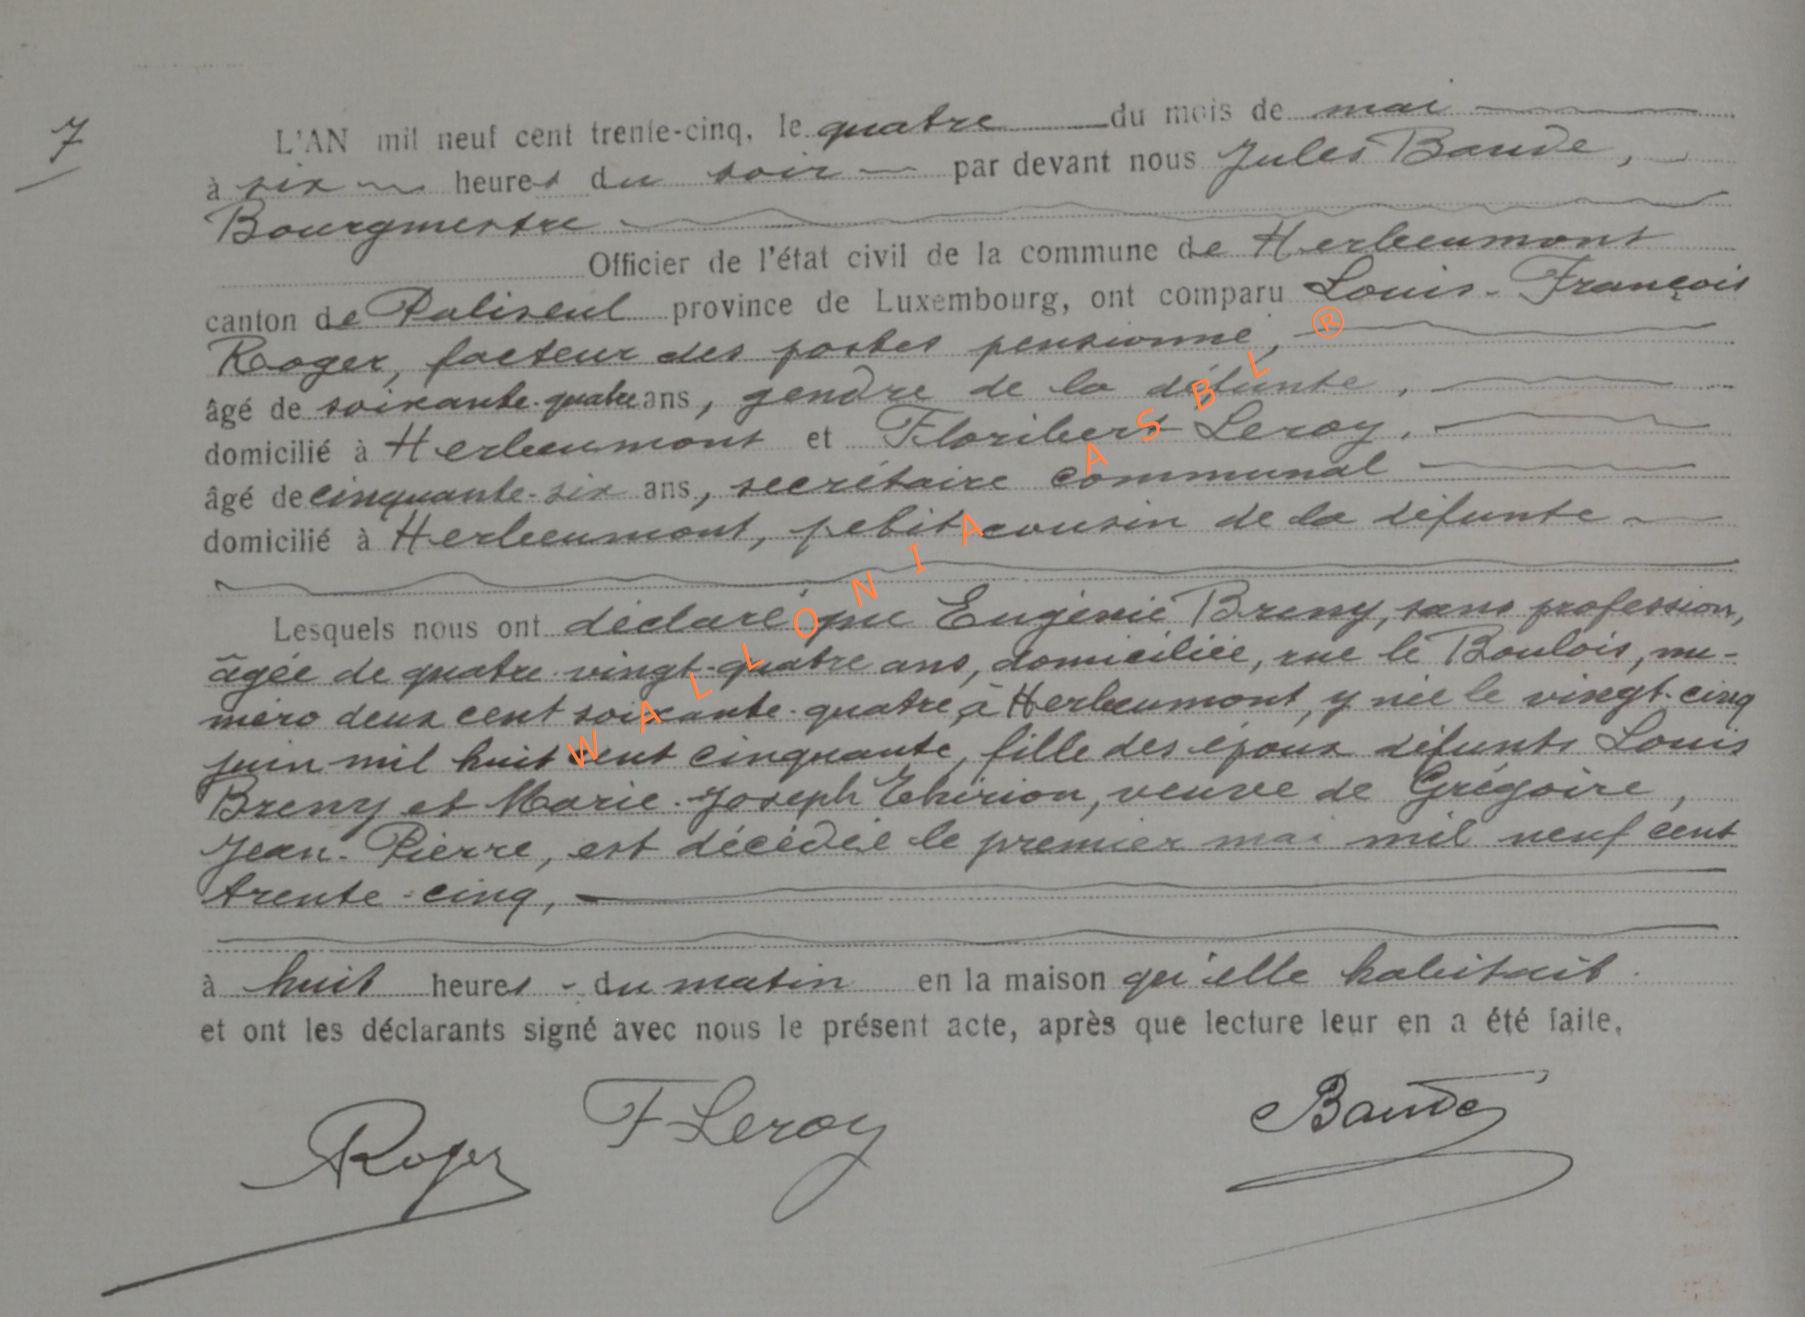 7
L'AN mil neuf cent trente-cinq, le quatre du mois de mai
à six heures du soir par devant nous Jules Baude,
Bourgmestre
Officier de l'état civil de la commune de Herbeumont
canton de Paliseul province de Luxembourg, ont comparu Louis-François
Roger, facteur des postes pensionné,
âgé de soixante-quatre ans, gendre de la défunte,
domicilié à Herbeumont et Floribert Leroy,
âgé de cinquante-six ans, secrétaire communal
domicilié à Herbeumont, petit cousin de la défunte
Lesquels nous ont déclaré que Eugénie Breny, sans profession,
âgée de quatre-vingt-quatre ans, domiciliée, rue le Boulois, nu-
méro deux cent soixante-quatre, à Herbeumont, y née le vingt-cinq
juin mil huit cent cinquante, fille des époux défunts Louis
Breny et Marie-Joseph Thirion, veuve de Grégoire,
Jean-Pierre, est décédée le premier mai mil neuf cent
trente-cinq,
à huit heures du matin en la maison qu'elle habitait
et ont les déclarants signé avec nous le présent acte, après que lecture leur en a été faite,
Roger F Leroy Baude
WALLONIA ASBL ®